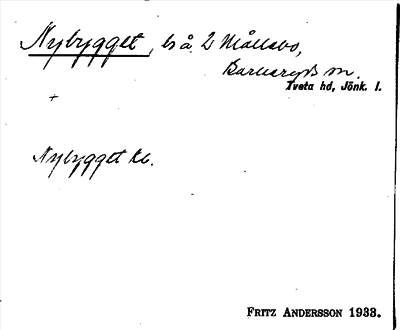 Nybygget, ls å 2 Mållebo,
Barkeryds sn.
Tveta hd, Jönk. l.
+
Nybygget kb.
FRITZ ANDERSSON 1933.